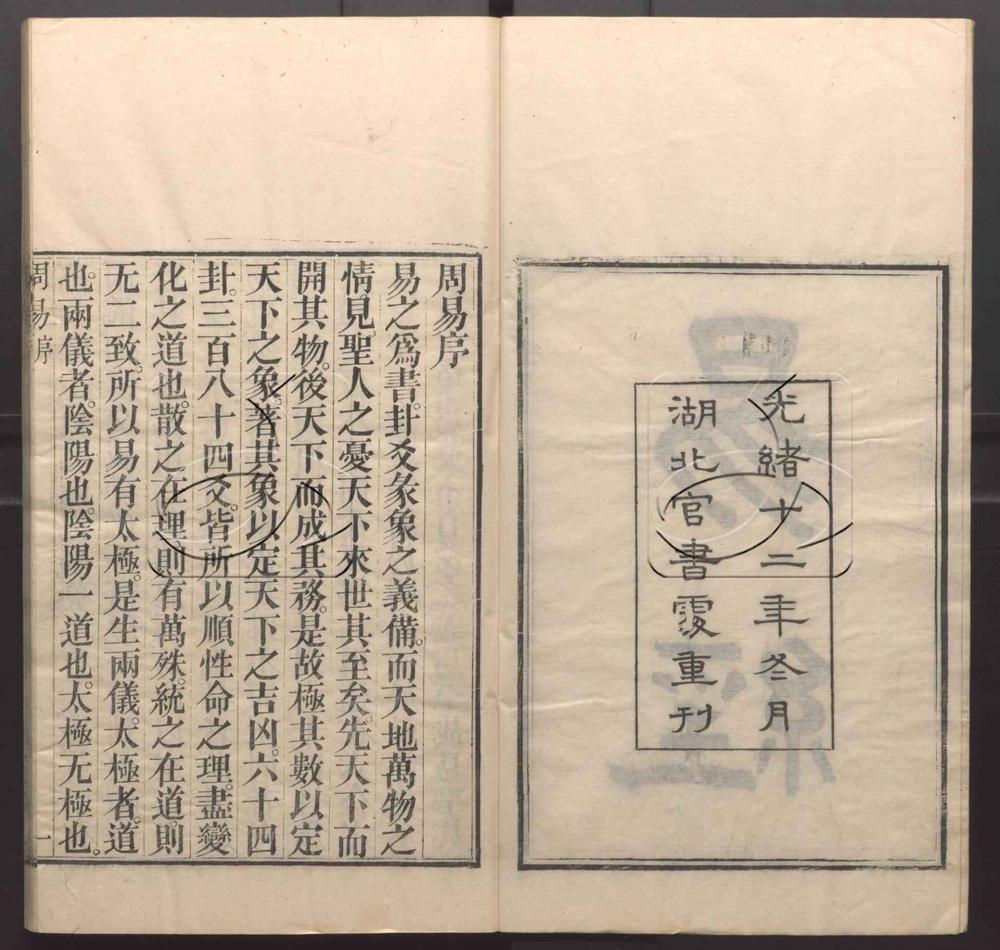 光緒十二年冬月
湖北官書處重刊
周易序
易之爲書。卦爻彖象之義備。而天地萬物之
情見。聖人之憂天下來世其至矣。先天下而
開其物。後天下而成其務。是故極其數以定
天下之象。著其象以定天下之吉凶。六十四
卦。三百八十四爻。皆所以順性命之理。盡變
化之道也。散之在理。則有萬殊。統之在道。則
无二致。所以易有太極。是生兩儀。太極者。道
也。兩儀者。陰陽也。陰陽一道也。太極无極也。
周易序 一